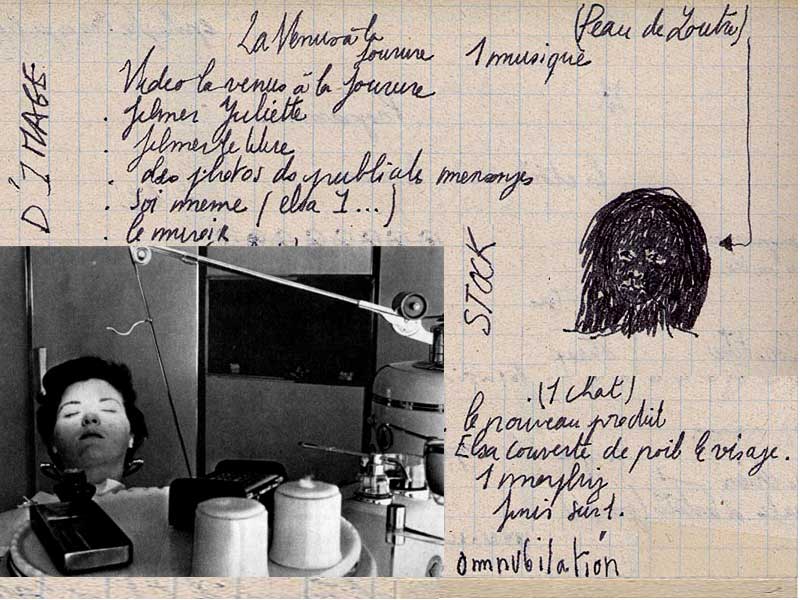 La Venus à la
fourure
1 musique
(Peau de Loutre)
Video la venus à la fourure
. filmer Juliette
. filmer le livre
. des photos de publicité mensonges
. Soi meme ( elsa 1 ... )
. le miroir
D'IMAGE
STOCK
. (1 chat)
le nouveau produit
Elsa couverte de poil le visage.
1 morphing
puis surt.
omnubilation